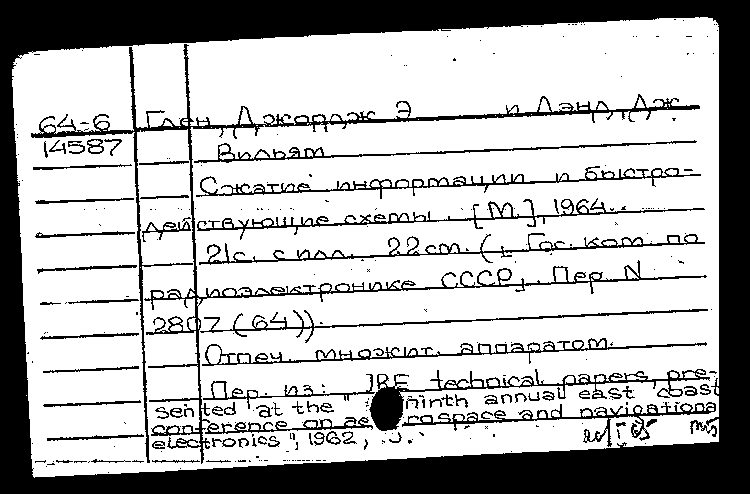 64-6 Глен, Джордж Э и Лэнд, Дж.
14587 Вильям
Сжатие информации и быстро-
действующие схемы. [М.], 1964.
21с. с илл. 22см. (. Гос. ком. по
радиоэлектронике СССР. Пер. N
2807 (64)).
Отпеч. множит. аппаратом.
Пер. из: JRE technical papers, pre-
sented at the "ninth annual east coast
conference on aerospace and navigational
electronics", 1962,